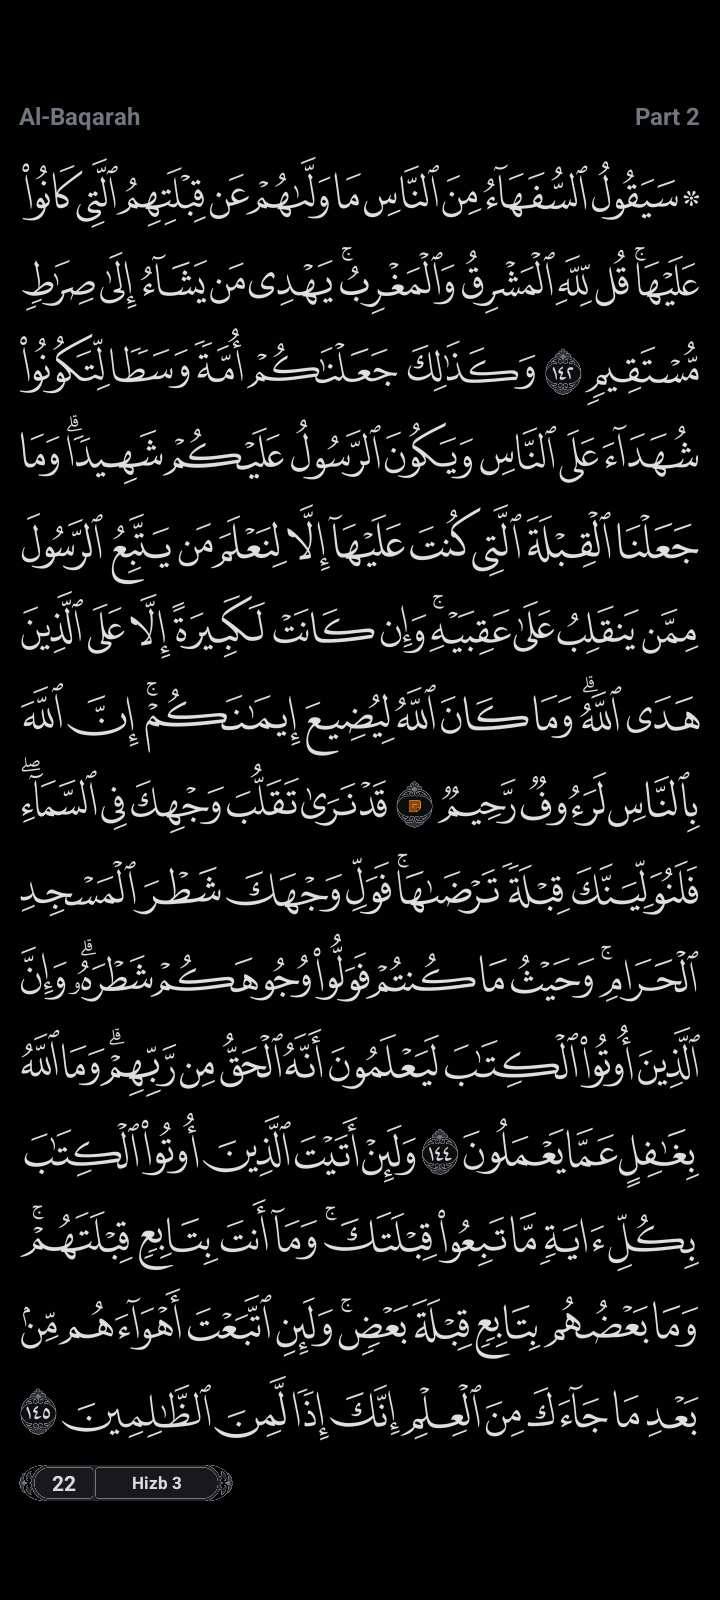 Al-Baqarah Part 2
۞ سَيَقُولُ ٱلسُّفَهَآءُ مِنَ ٱلنَّاسِ مَا وَلَّىٰهُمْ عَن قِبْلَتِهِمُ ٱلَّتِى كَانُوا۟
عَلَيْهَا ۚ قُل لِّلَّهِ ٱلْمَشْرِقُ وَٱلْمَغْرِبُ ۚ يَهْدِى مَن يَشَآءُ إِلَىٰ صِرَٰطٍ
مُّسْتَقِيمٍ ١٤٢ وَكَذَٰلِكَ جَعَلْنَٰكُمْ أُمَّةً وَسَطًا لِّتَكُونُوا۟
شُهَدَآءَ عَلَى ٱلنَّاسِ وَيَكُونَ ٱلرَّسُولُ عَلَيْكُمْ شَهِيدًا ۗ وَمَا
جَعَلْنَا ٱلْقِبْلَةَ ٱلَّتِى كُنتَ عَلَيْهَآ إِلَّا لِنَعْلَمَ مَن يَتَّبِعُ ٱلرَّسُولَ
مِمَّن يَنقَلِبُ عَلَىٰ عَقِبَيْهِ ۚ وَإِن كَانَتْ لَكَبِيرَةً إِلَّا عَلَى ٱلَّذِينَ
هَدَى ٱللَّهُ ۗ وَمَا كَانَ ٱللَّهُ لِيُضِيعَ إِيمَٰنَكُمْ ۚ إِنَّ ٱللَّهَ
بِٱلنَّاسِ لَرَءُوفٌ رَّحِيمٌ قَدْ نَرَىٰ تَقَلُّبَ وَجْهِكَ فِى ٱلسَّمَآءِ ۖ
فَلَنُوَلِّيَنَّكَ قِبْلَةً تَرْضَىٰهَا ۚ فَوَلِّ وَجْهَكَ شَطْرَ ٱلْمَسْجِدِ
ٱلْحَرَامِ ۚ وَحَيْثُ مَا كُنتُمْ فَوَلُّوا۟ وُجُوهَكُمْ شَطْرَهُۥ ۗ وَإِنَّ
ٱلَّذِينَ أُوتُوا۟ ٱلْكِتَٰبَ لَيَعْلَمُونَ أَنَّهُ ٱلْحَقُّ مِن رَّبِّهِمْ ۗ وَمَا ٱللَّهُ
بِغَٰفِلٍ عَمَّا يَعْمَلُونَ ١٤٤ وَلَئِنْ أَتَيْتَ ٱلَّذِينَ أُوتُوا۟ ٱلْكِتَٰبَ
بِكُلِّ ءَايَةٍ مَّا تَبِعُوا۟ قِبْلَتَكَ ۚ وَمَآ أَنتَ بِتَابِعٍ قِبْلَتَهُمْ ۚ
وَمَا بَعْضُهُم بِتَابِعٍ قِبْلَةَ بَعْضٍ ۚ وَلَئِنِ ٱتَّبَعْتَ أَهْوَآءَهُم مِّنۢ
بَعْدِ مَا جَآءَكَ مِنَ ٱلْعِلْمِ إِنَّكَ إِذًا لَّمِنَ ٱلظَّٰلِمِينَ ١٤٥
22 Hizb 3